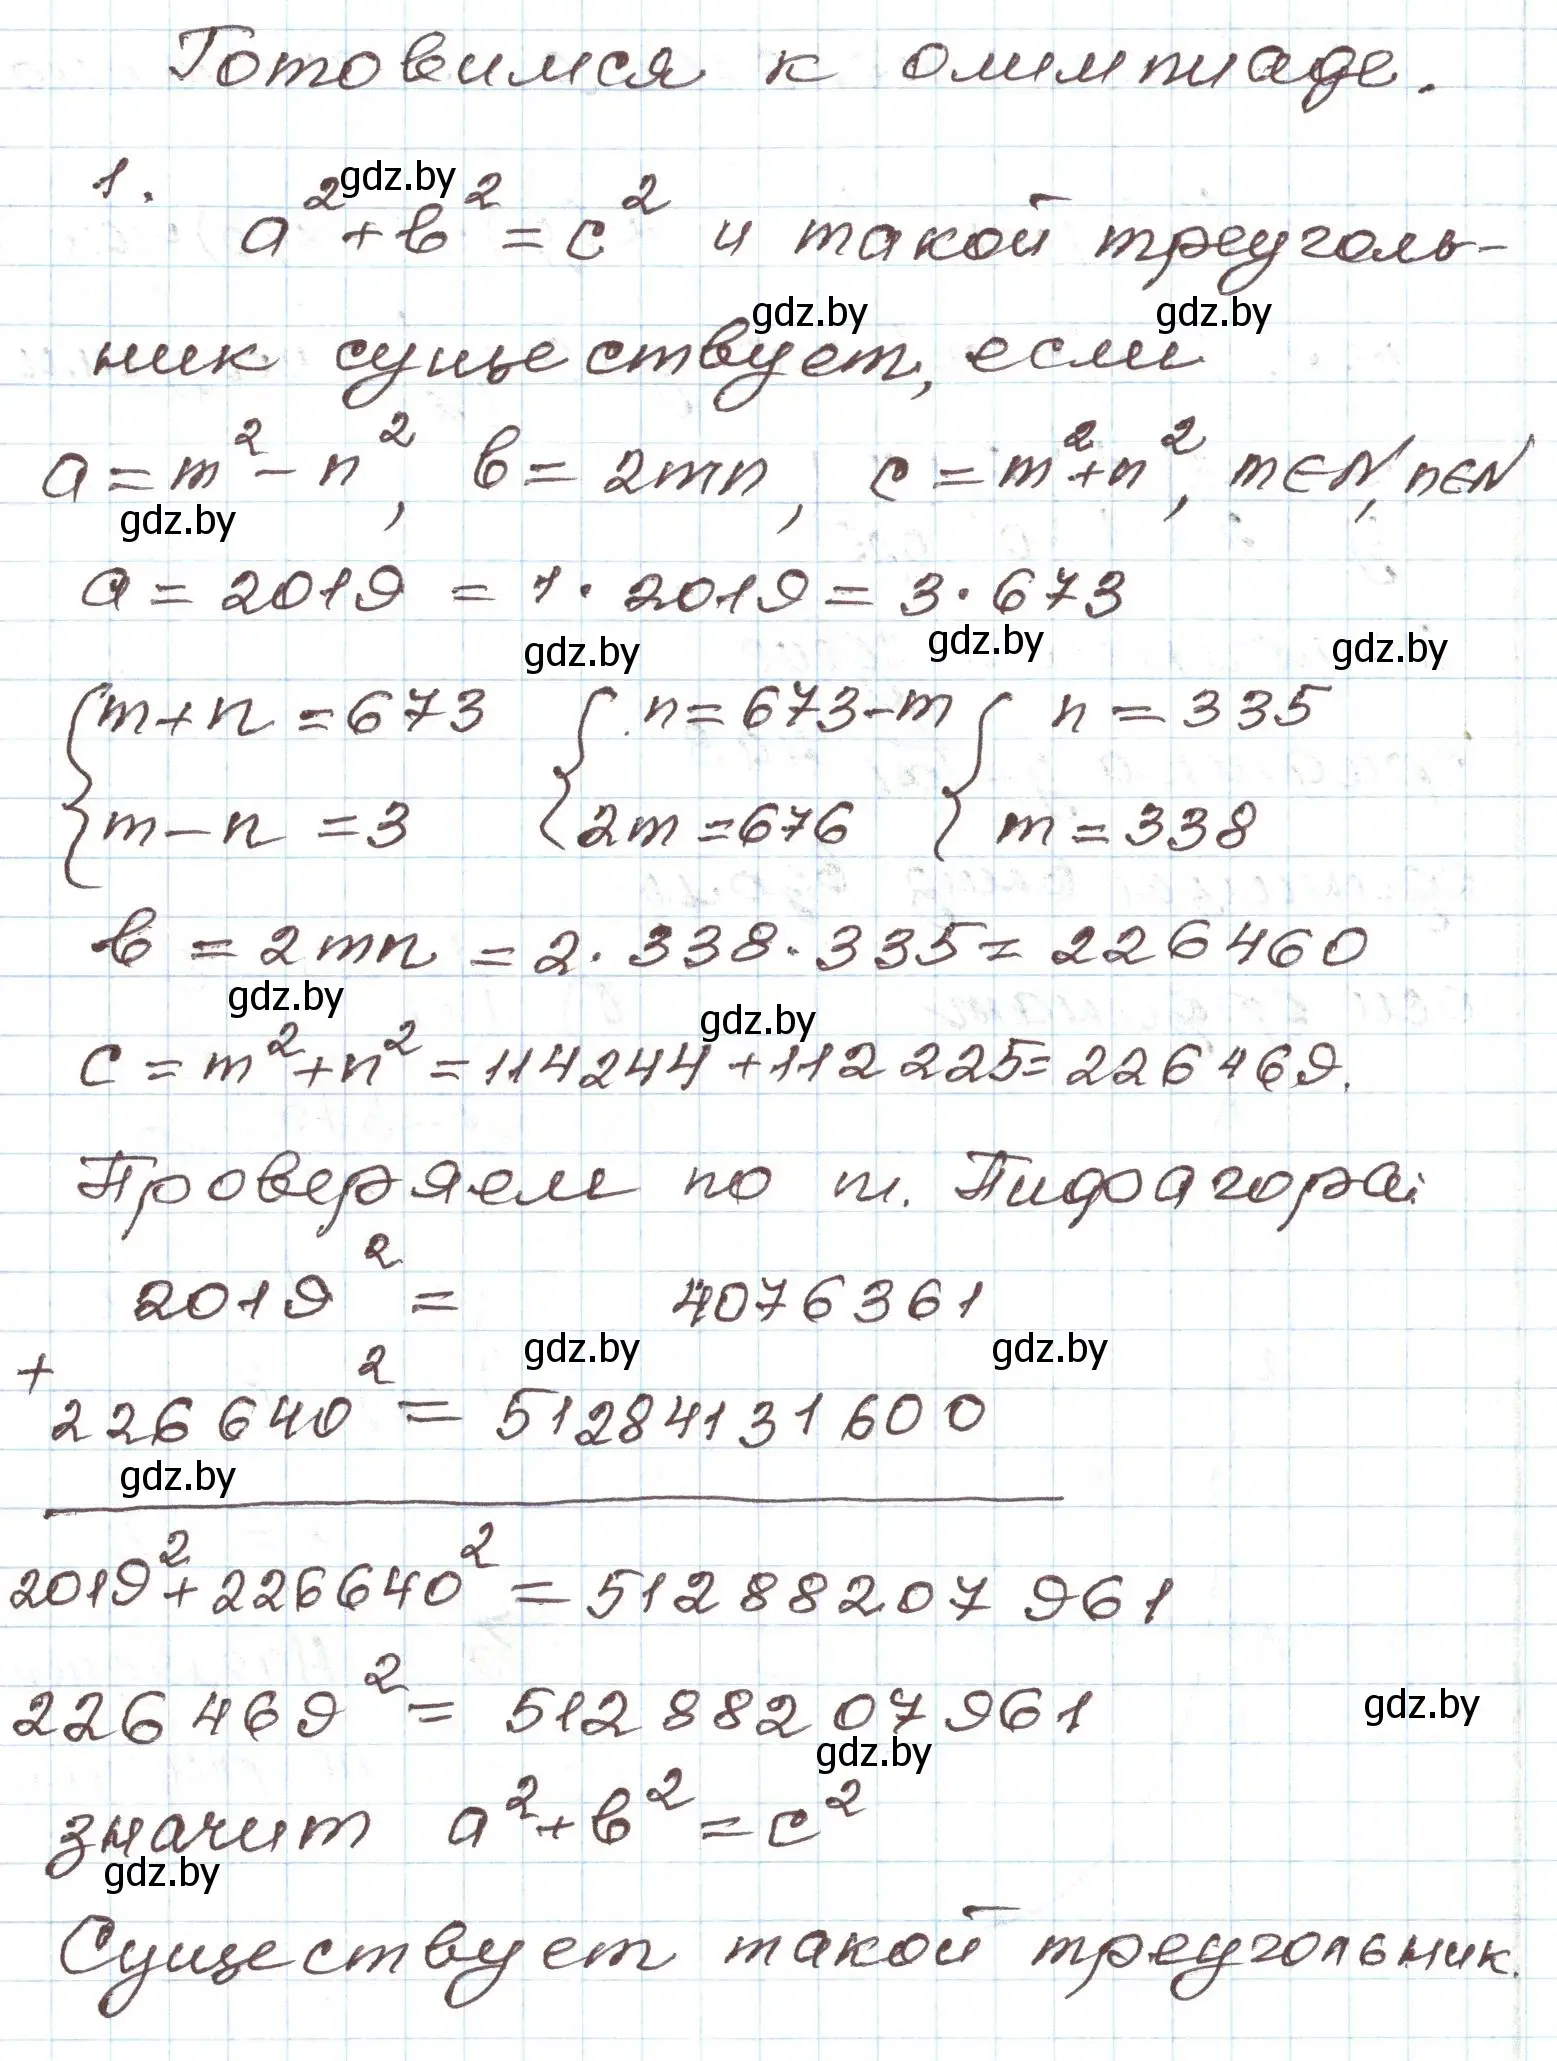 Готовимся к олимпиаде.
1. gdz.by
a² + b² = c² и такой треуголь-
gdz.by gdz.by
ник существует, если
a = m² - n², b = 2mn, c = m² + n², m∈N, n∈N
gdz.by
a = 2019 = 1 · 2019 = 3 · 673
gdz.by gdz.by gdz.by
{m + n = 673 {n = 673 - m {n = 335
{m - n = 3 {2m = 676 {m = 338
b = 2mn = 2 · 338 · 335 = 226460
gdz.by gdz.by
c = m² + n² = 114244 + 112225 = 226469.
Проверяем по т. Пифагора:
2019² = 4076361
gdz.by gdz.by
+
226640² = 51284131600
gdz.by
2019² + 226640² = 51288207961
226469² = 51288207961
gdz.by
gdz.by
значит a² + b² = c²
gdz.by
Существует такой треугольник.